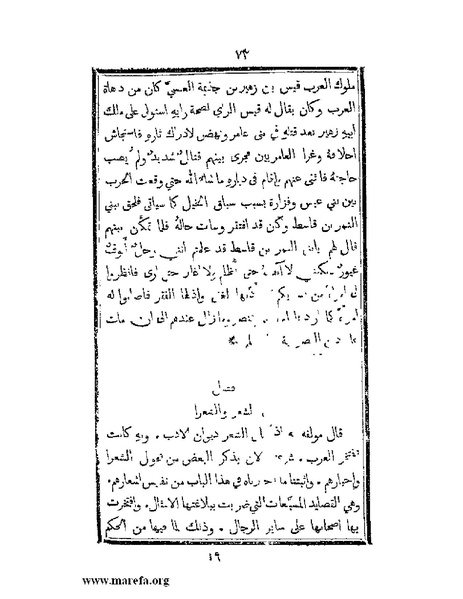 ٧٣
ملوك العرب قيس بن زهير بن جذيمة العبسي كان من دهاة
العرب وكان يقال له قيس الراي لصحة رايه استولى على ملك
ابيه زهير بعد قتله في بني عامر ونهض لادراك ثاره فاستجاش
احلافه وغزا العامريين فجرى بينهم قتال شديد ولم يصب
حاجته فانثنى عنهم واقام في دياره ما شاء الله حتى وقعت الحرب
بين بني عبس وفزارة بسبب سباق الخيل كما سياتي فلحق ببني
النمر بن قاسط وكان قد افتقر وساءت حاله فلما تمكن بينهم
قال لهم يا بني النمر بن قاسط قد علمتم انني رجل
غيور حتى أظلم ولا اغار حتى ارى فانظروا
لي امرأة من الغنى واذلها الفقر فاصابوا له
امرأة كما اراد عندهم الى ان مات
فصل
الشعر والشعرا
قال مولفه الشعر ديوان الادب. وبه كانت
تفتخر العرب. الان بذكر البعض من فحول الشعرا
واخبارهم. واثبتنا ما في هذا الباب من نفيس اشعارهم.
وهي القصايد المسبعات التي ضربت ببلاغتها الامثال. وافتخرت
بها اصحابها على ساير الرجال. وذلك لما فيها من الحكم
١٩
www.marefa.org